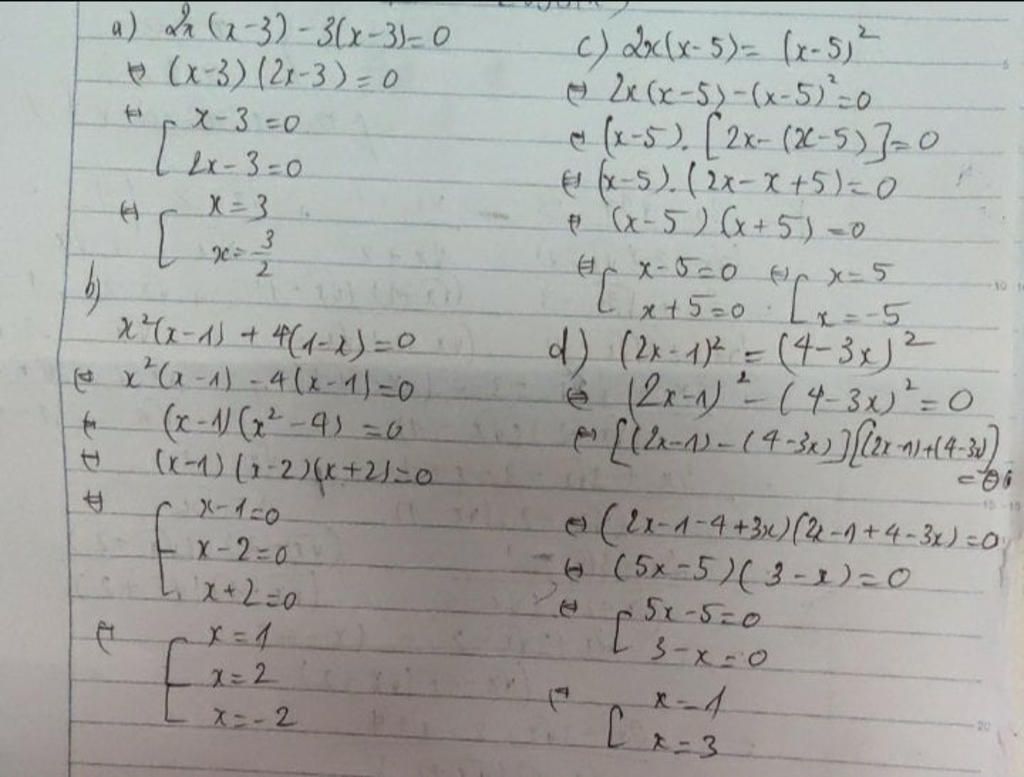 a) 2x(x-3) - 3(x-3)=0
⇔ (x-3)(2x-3)=0
⇔ [ x-3=0
2x-3=0
⇔ [ x=3
x=3/2
b)
x²(x-1) + 4(1-x)=0
⇔ x²(x-1) - 4(x-1)=0
⇔ (x-1)(x²-4)=0
⇔ (x-1)(x-2)(x+2)=0
⇔ [ x-1=0
x-2=0
x+2=0
⇔ [ x=1
x=2
x=-2
c) 2x(x-5)= (x-5)²
⇔ 2x(x-5)-(x-5)²=0
⇔ (x-5).[2x-(x-5)]=0
⇔ (x-5).(2x-x+5)=0
⇔ (x-5)(x+5)=0
⇔ [ x-5=0 ⇔ [ x=5
x+5=0 x=-5
d) (2x-1)² = (4-3x)²
⇔ (2x-1)² - (4-3x)² = 0
⇔ [(2x-1)-(4-3x)][(2x-1)+(4-3x)]
=0
⇔ (2x-1-4+3x)(2x-1+4-3x)=0
⇔ (5x-5)(3-x)=0
⇔ [ 5x-5=0
3-x=0
⇔ [ x=1
x=3